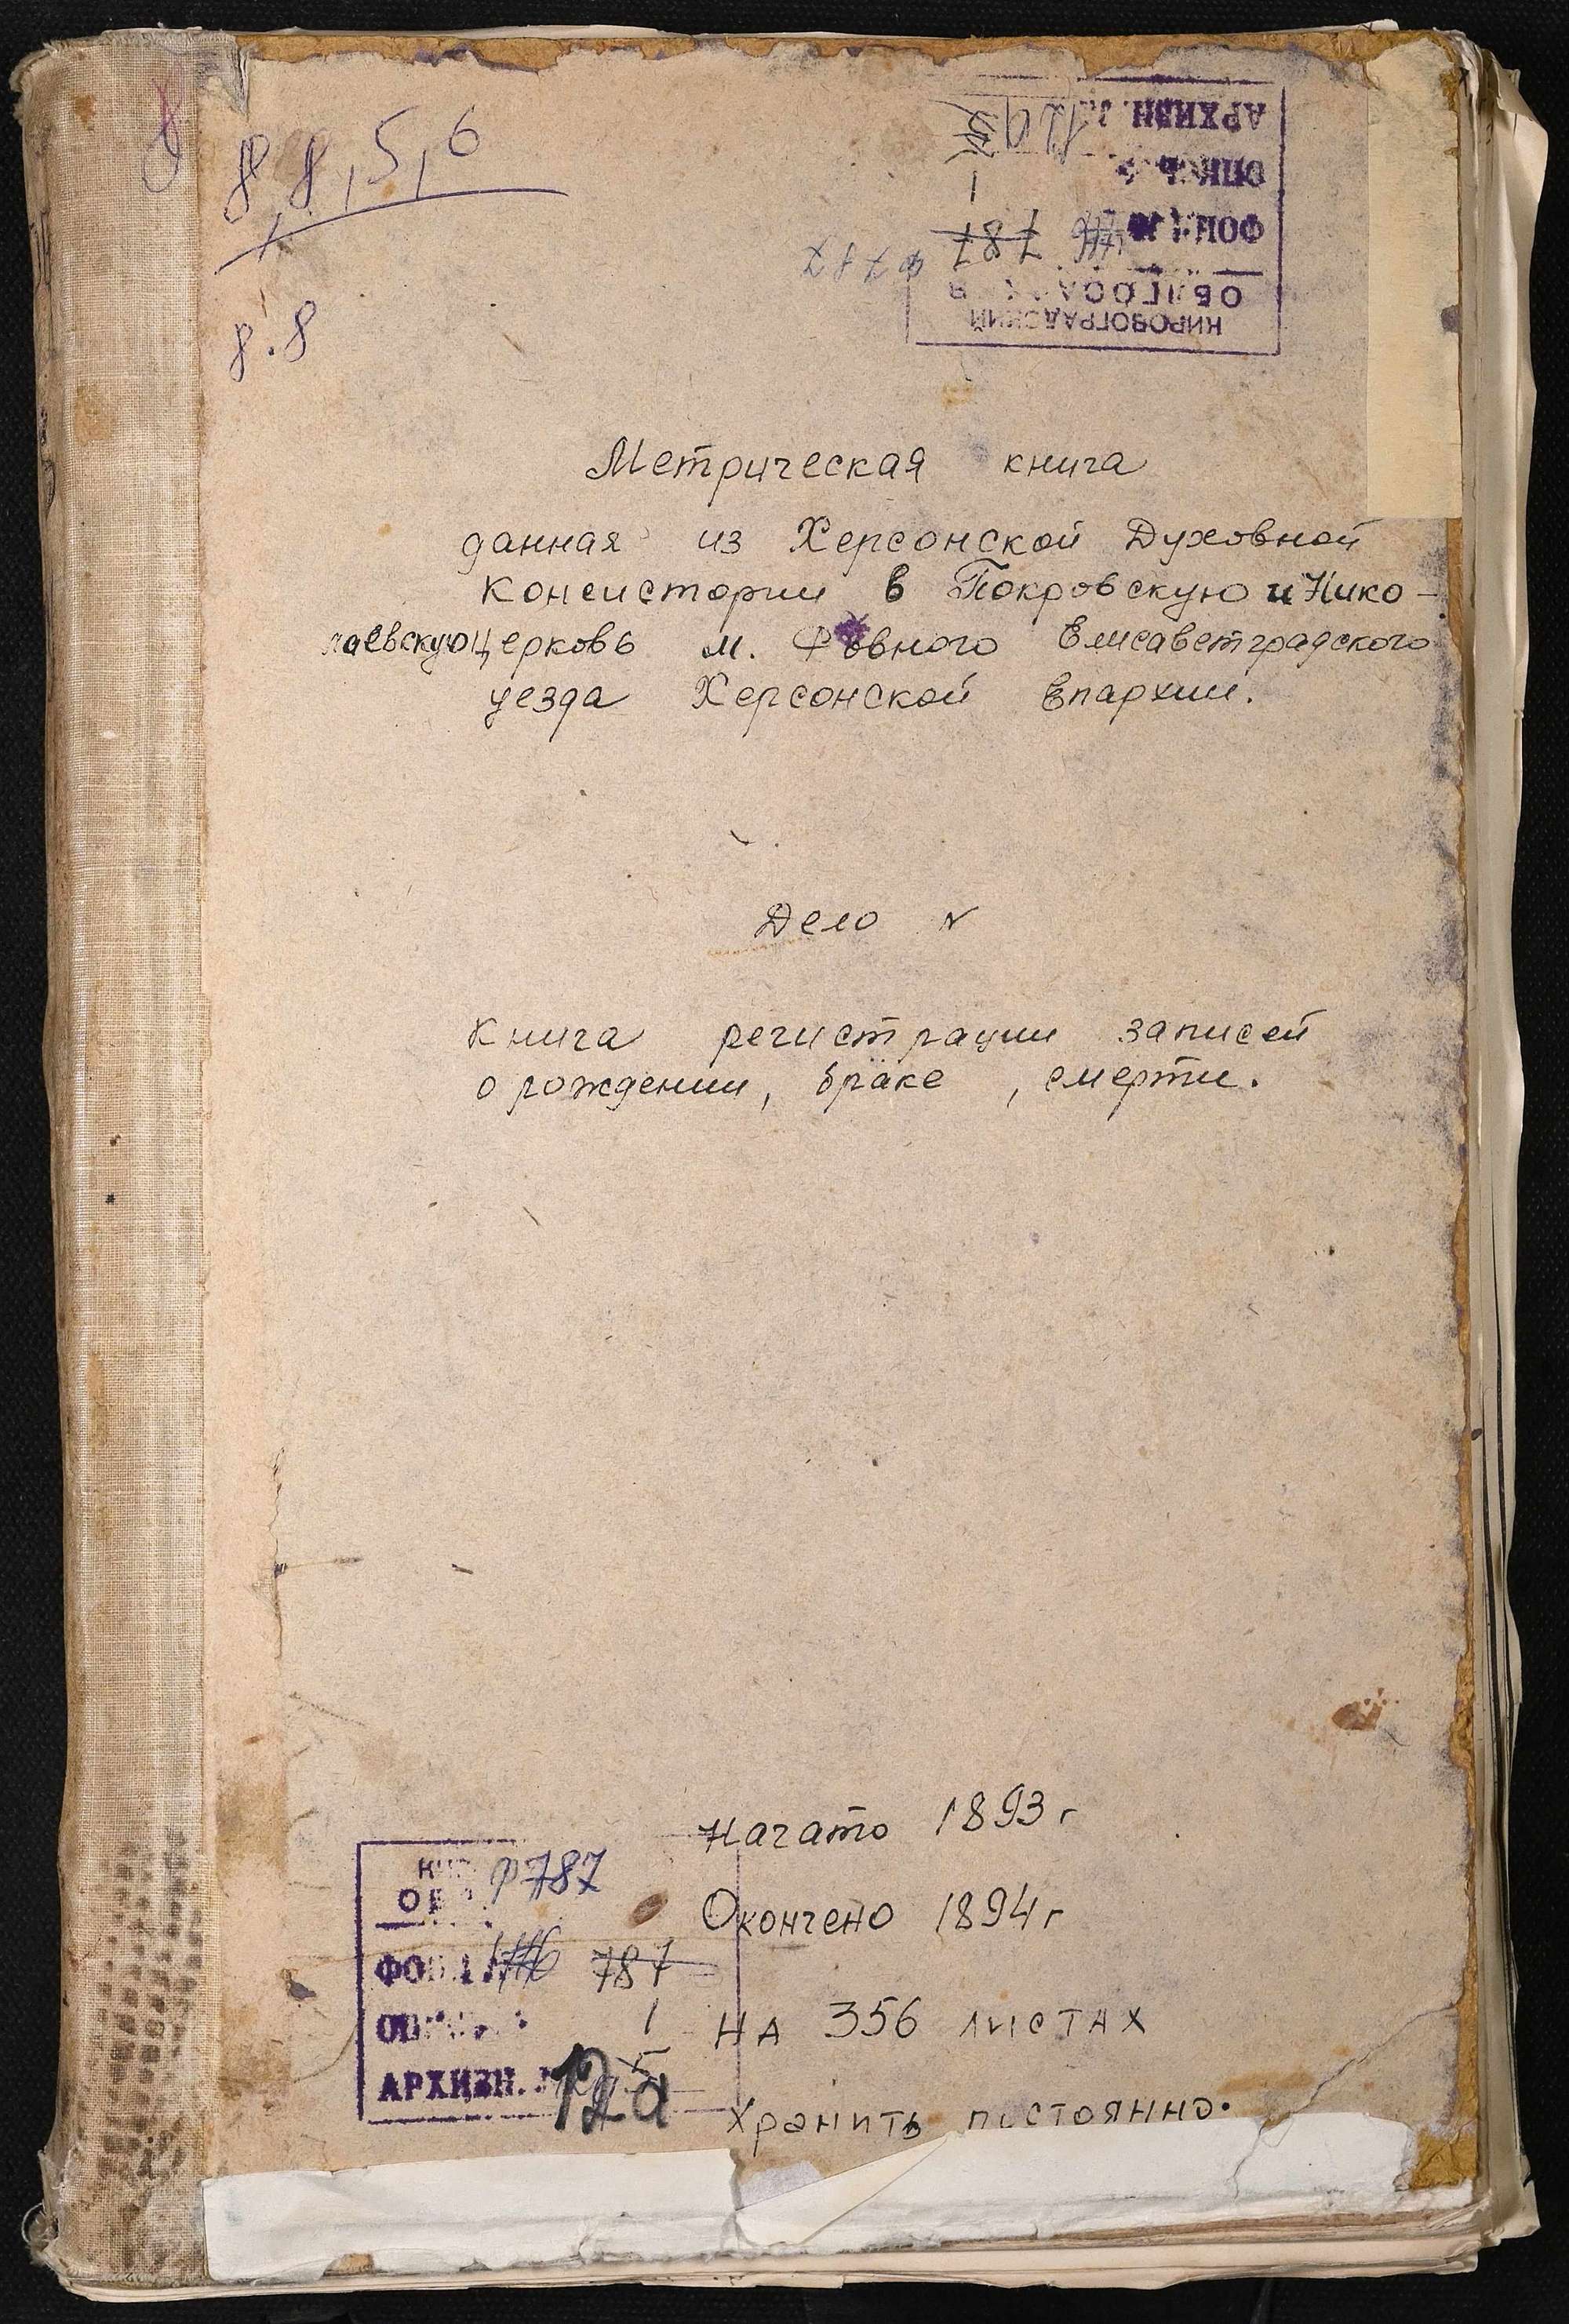 8 8, 5, 6
8.8
КИРОВОГРАДСКИЙ
ф 787
787
1
АРХИВН.
Метрическая книга
данная из Херсонской Духовной
Консистории в Покровскую и Нико-
лаевскую церковь м. Ровного Елисаветградского
уезда Херсонской Епархии.
Дело №
Книга регистрации записей
о рождении, браке, смерти.
Начато 1893 г
Окончено 1894 г
На 356 листах
Хранить постоянно.
ф 787
787
1
АРХИВН.
12а